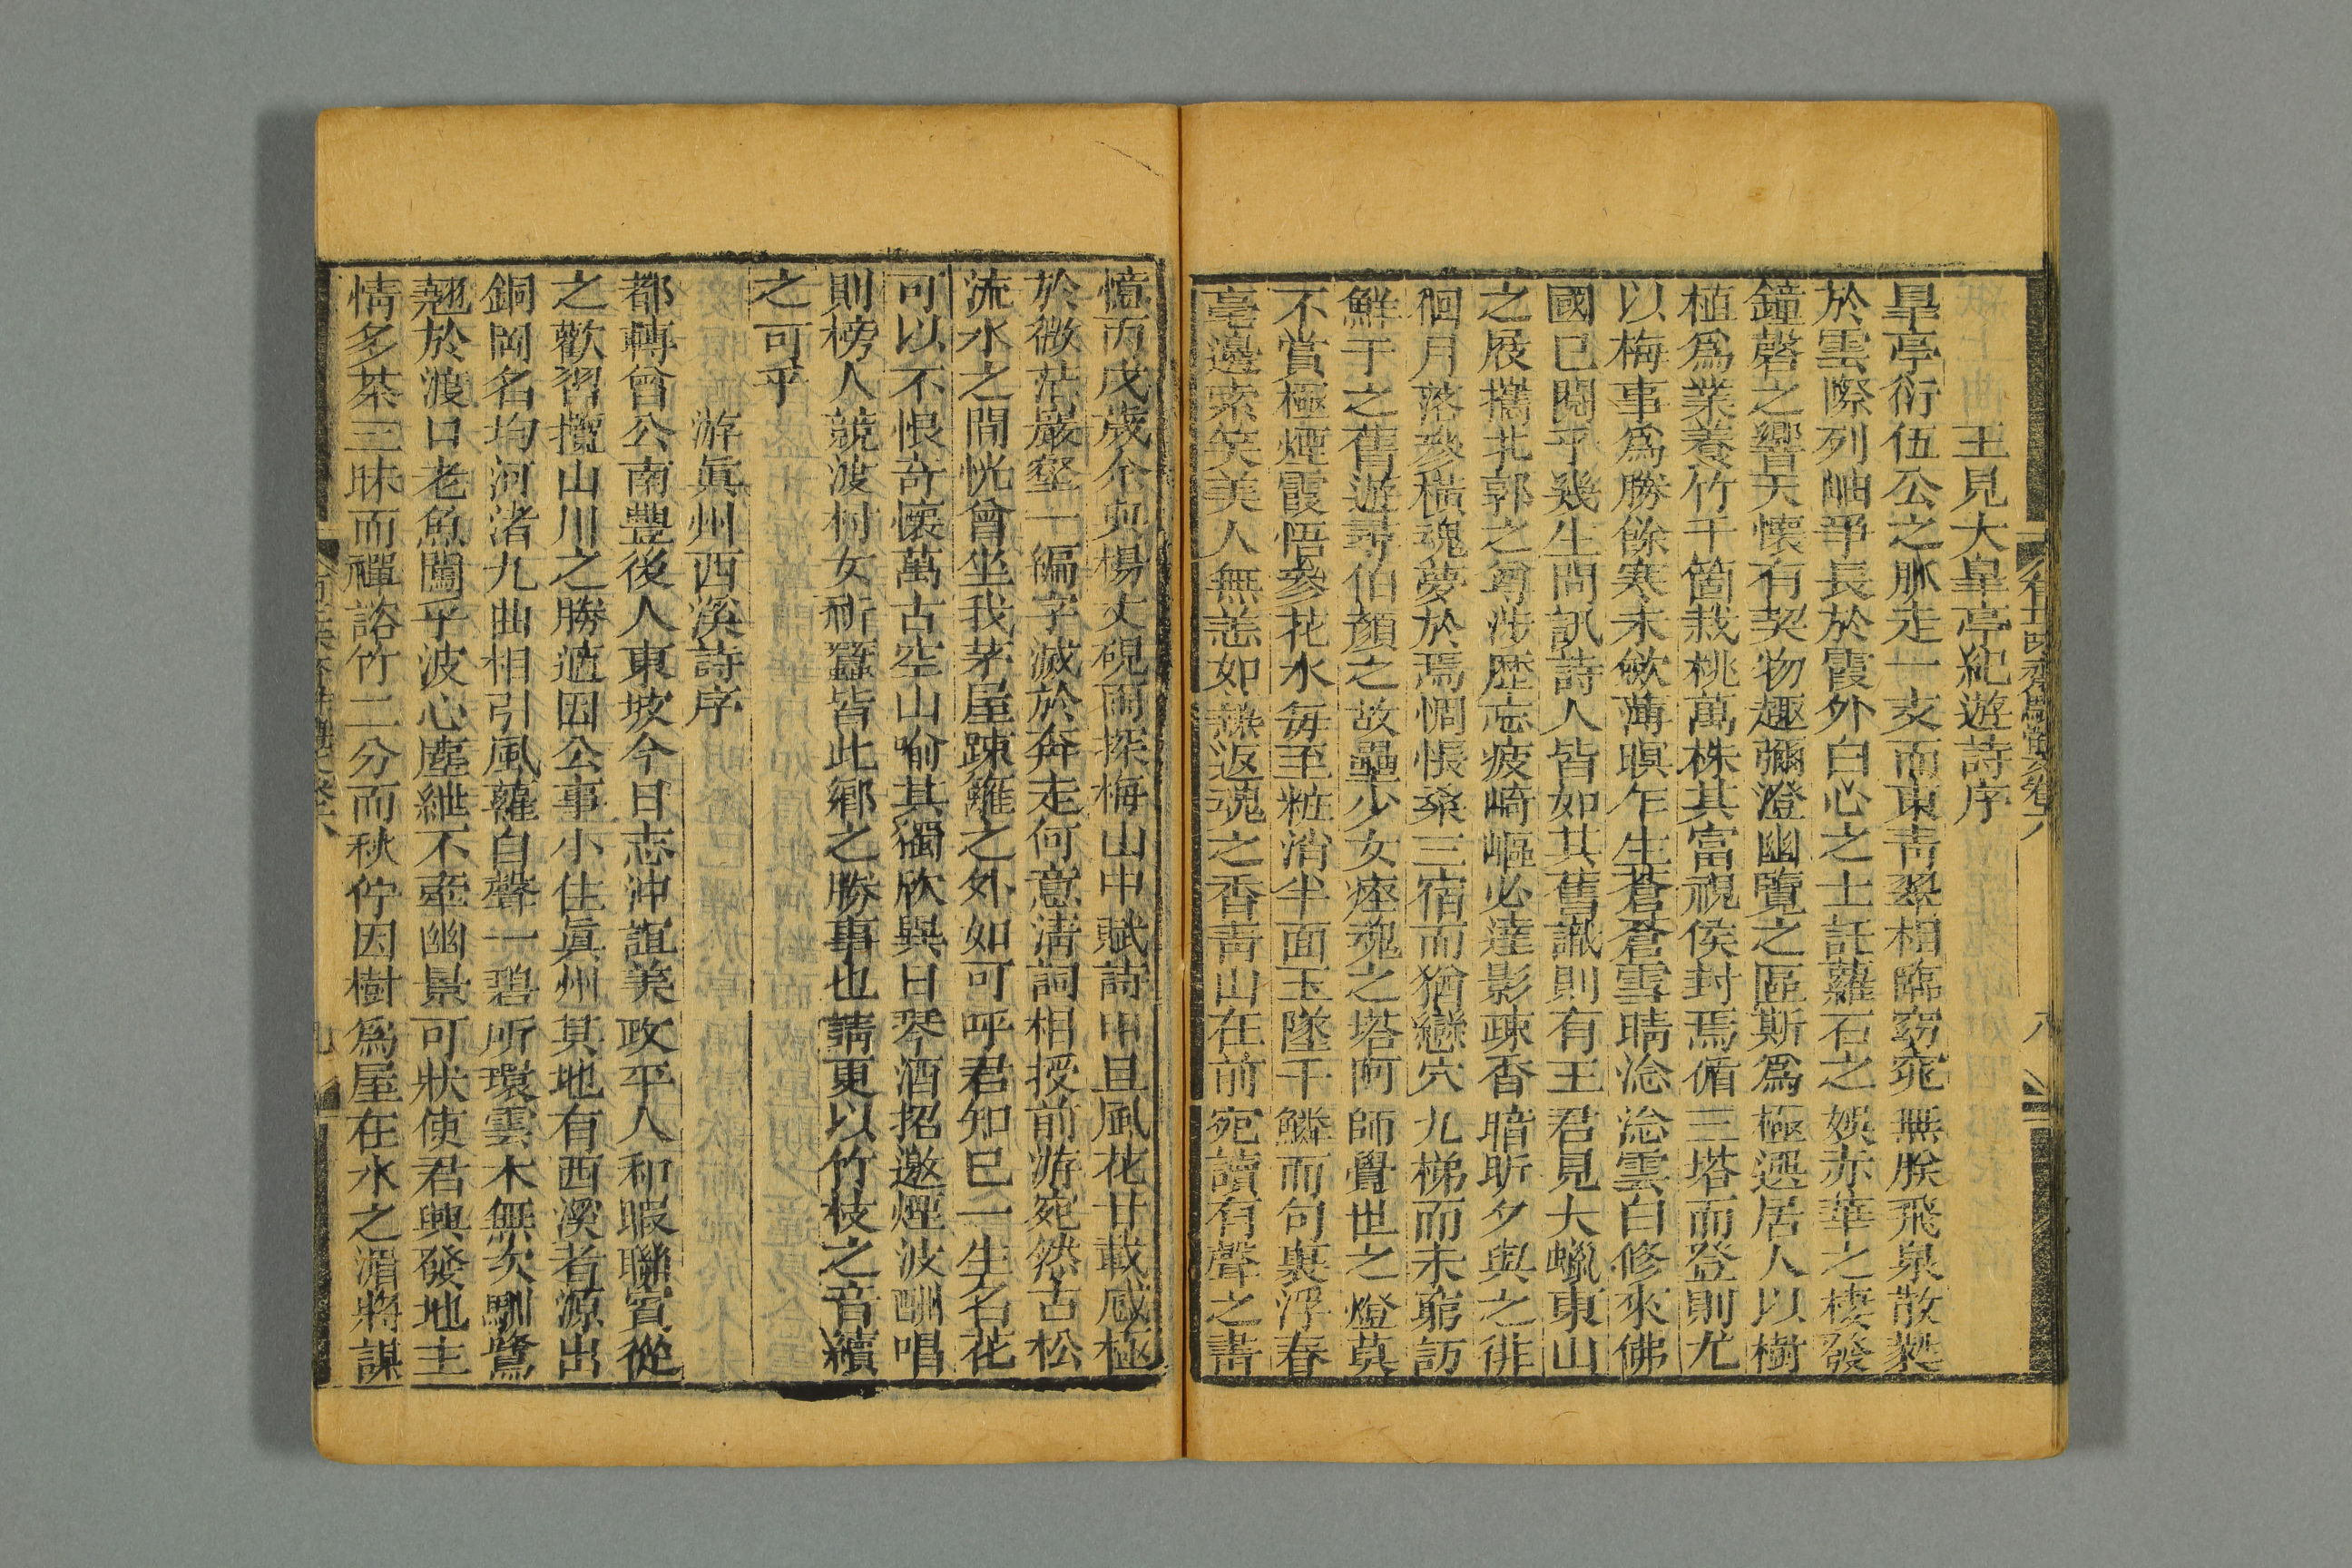 王見大皐亭紀遊詩序
皐亭衍伍公之脈走一支而東青翠相臨窈窕無朕飛泉散甤
於雲際列岫爭長於霞外白心之士託蘿石之娛赤華之棲發
鐘磬之響天懷有契物趣彌澄幽覽之區斯爲極選居人以樹
植爲業養竹千箇栽桃萬株其富視侯封焉循三塔而登則尤
以梅事爲勝餘寒未歛薄暝乍生蒼蒼雪晴淰淰雲白修來佛
國已閱乎幾生問訊詩人皆如其舊識則有王君見大蠟東山
之屐攜北郭之尊涉歷忘疲崎嶇必達影疎香暗昕夕與之徘
徊月落參橫魂夢於焉惆悵桑三宿而猶戀穴九梯而未窮訪
鮮于之舊遊尋伯顏之故壘少女瘞魂之塔阿師覺世之燈莫
不賞極煙霞悟參花水每至粧消半面玉墜千鱗而句裹浮春
毫邊索笑美人無恙如爇返魂之香靑山在前宛讀有聲之畫
憶丙戌歲余與楊丈硯雨探梅山中賦詩申旦風花廿載感極
於微茫巖壑一編字滅於奔走何意淸詞相授前游宛然古松
流水之間恍曾坐我茅屋疎籬之外如可呼君知已一生名花
可以不恨奇懷萬古空山喻其獨欣異日琴酒招邀煙波酬唱
則榜人競波村女祈蠶皆此鄕之勝事也請更以竹枝之音續
之可乎
游眞州西溪詩序
都轉曾公南豐後人東坡今日志沖誼美政平人和暇聯賓從
之歡習攬山川之勝適因公事小住眞州其地有西溪者源出
銅岡名均河渚九曲相引風蘿自聲一碧所環雲木無次馴鷺
翹於渡口老魚闖乎波心塵紲不牽幽景可狀使君興發地主
情多茶三昧而禪諮竹二分而秋佇因樹爲屋在水之湄將謀